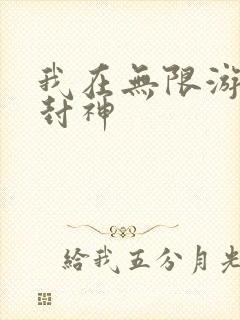 我在無限游
封神
給我五分月光